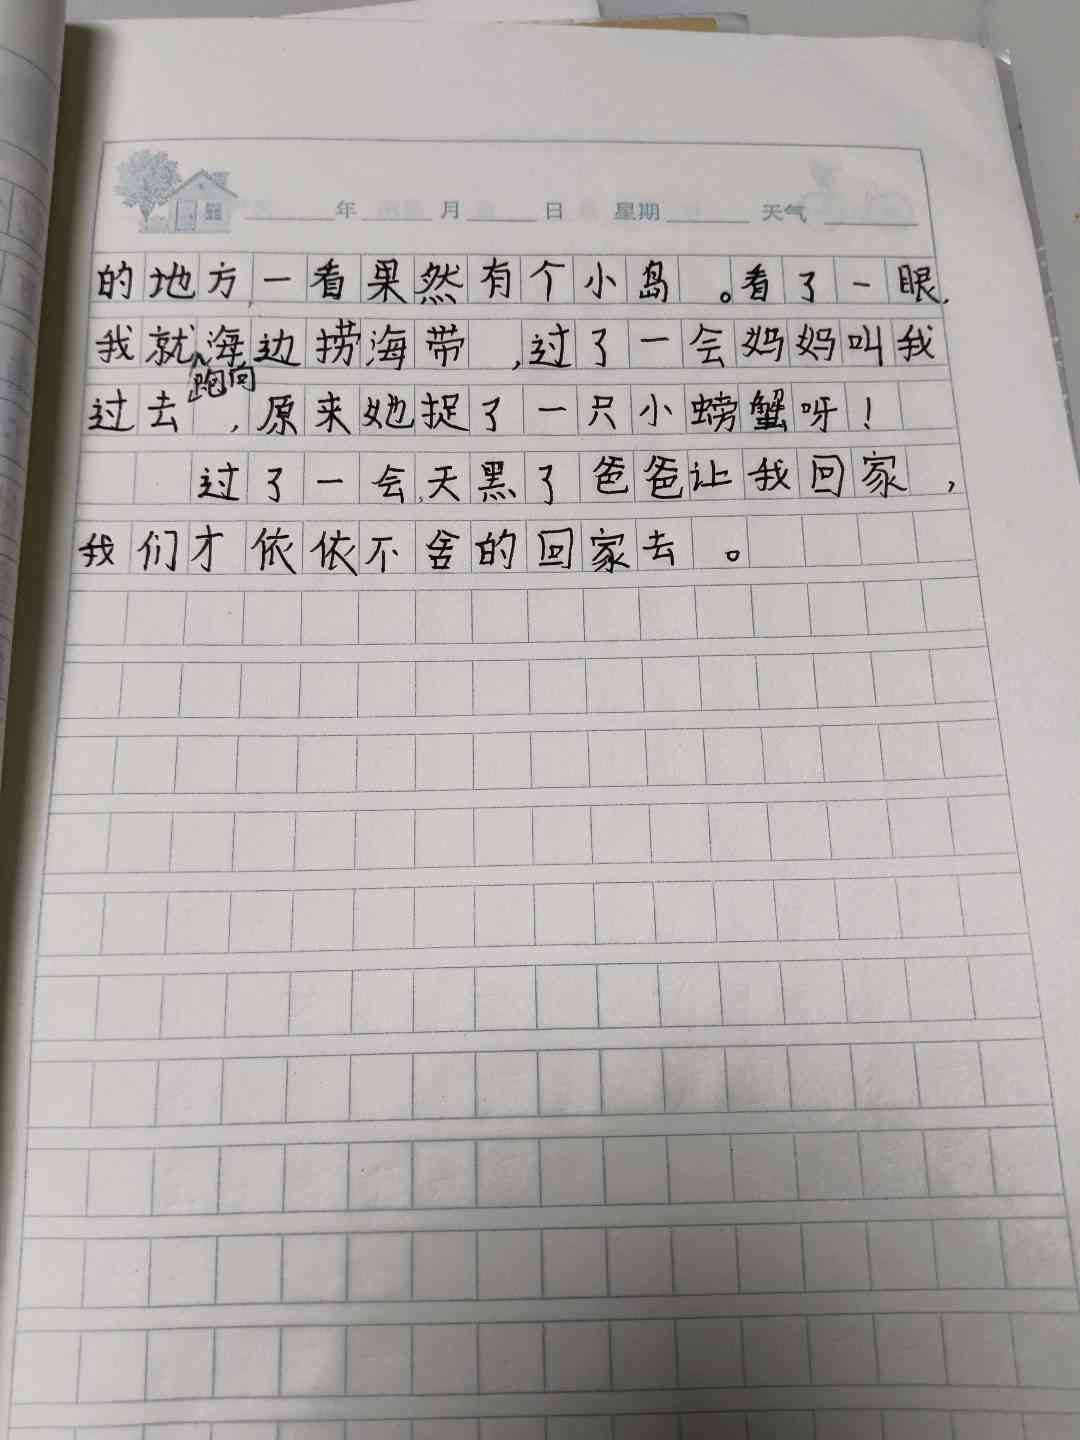 年 月 日 星期 天气
的地方,一看果然有个小岛。看了一眼,
我就跑向海边捞海带,过了一会妈妈叫我
过去,原来她捉了一只小螃蟹呀!
过了一会,天黑了爸爸让我回家,
我们才依依不舍的回家去。